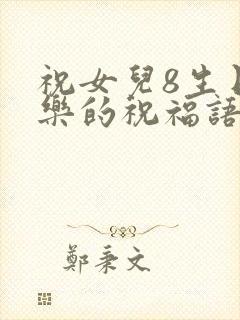 祝女兒8生
樂的祝福語
鄭秉文